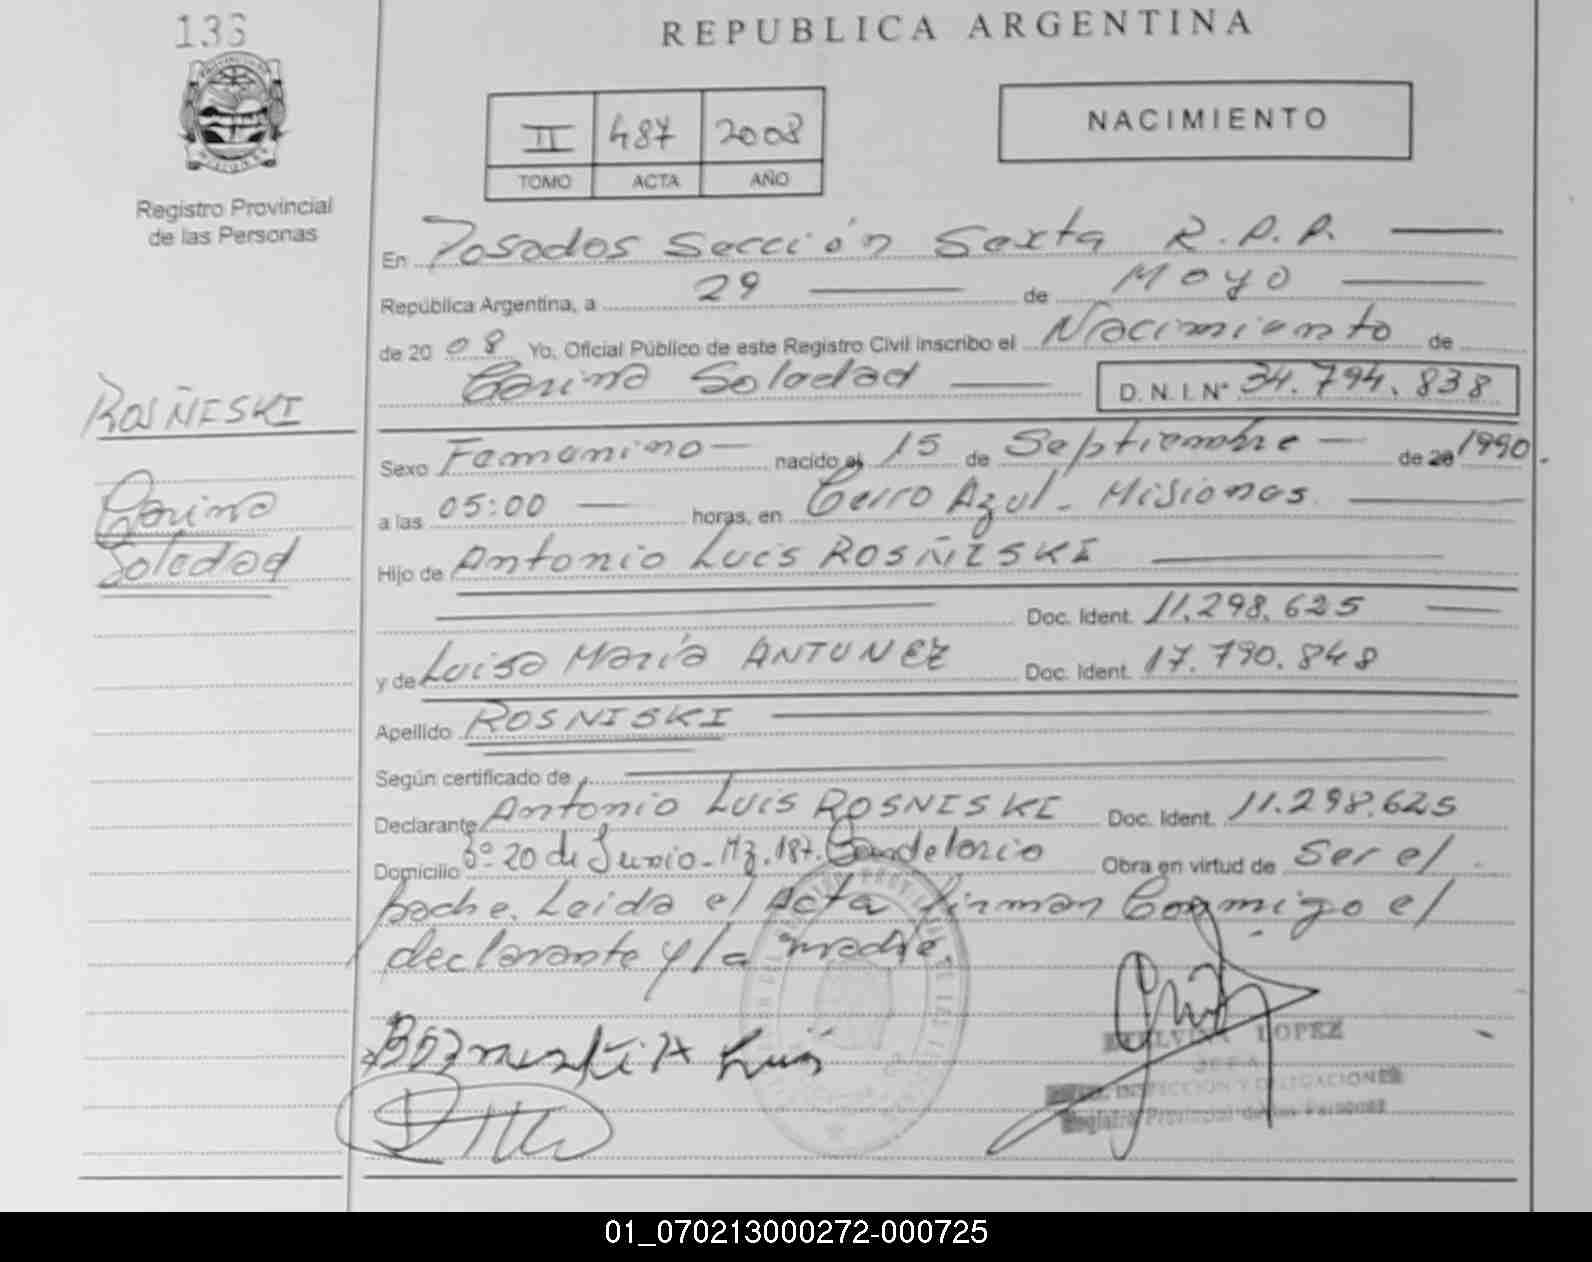 133
REPUBLICA ARGENTINA
II 487 2008
TOMO ACTA AÑO
NACIMIENTO
Registro Provincial
de las Personas
En Posadas Sección Sexta R.P.P.
República Argentina, a 29 de Mayo
de 20 08 Yo, Oficial Público de este Registro Civil inscribo el Nacimiento de
Carina Soledad D.N.I. N° 34.794.838
ROSÑESKI
Carina
Soledad
Sexo Femenino nacido el 15 de Septiembre de 20 1990.
a las 05:00 horas, en Cerro Azul - Misiones.
Hijo de Antonio Luis ROSÑESKI
Doc. Ident. 11.298.625
y de Luisa María ANTUNEZ Doc. Ident. 17.790.848
Apellido ROSNISKI
Según certificado de
Declarante Antonio Luis ROSNISKI Doc. Ident. 11.298.625
Domicilio Bº 20 de Junio - Mz. 187. Candelaria Obra en virtud de Ser el
padre. Leida el Acta firman Conmigo el
declarante y la madre.
LOPEZ
JEFA
INSPECCION Y DELEGACIONES
Registro Provincial de las Personas
01_070213000272-000725